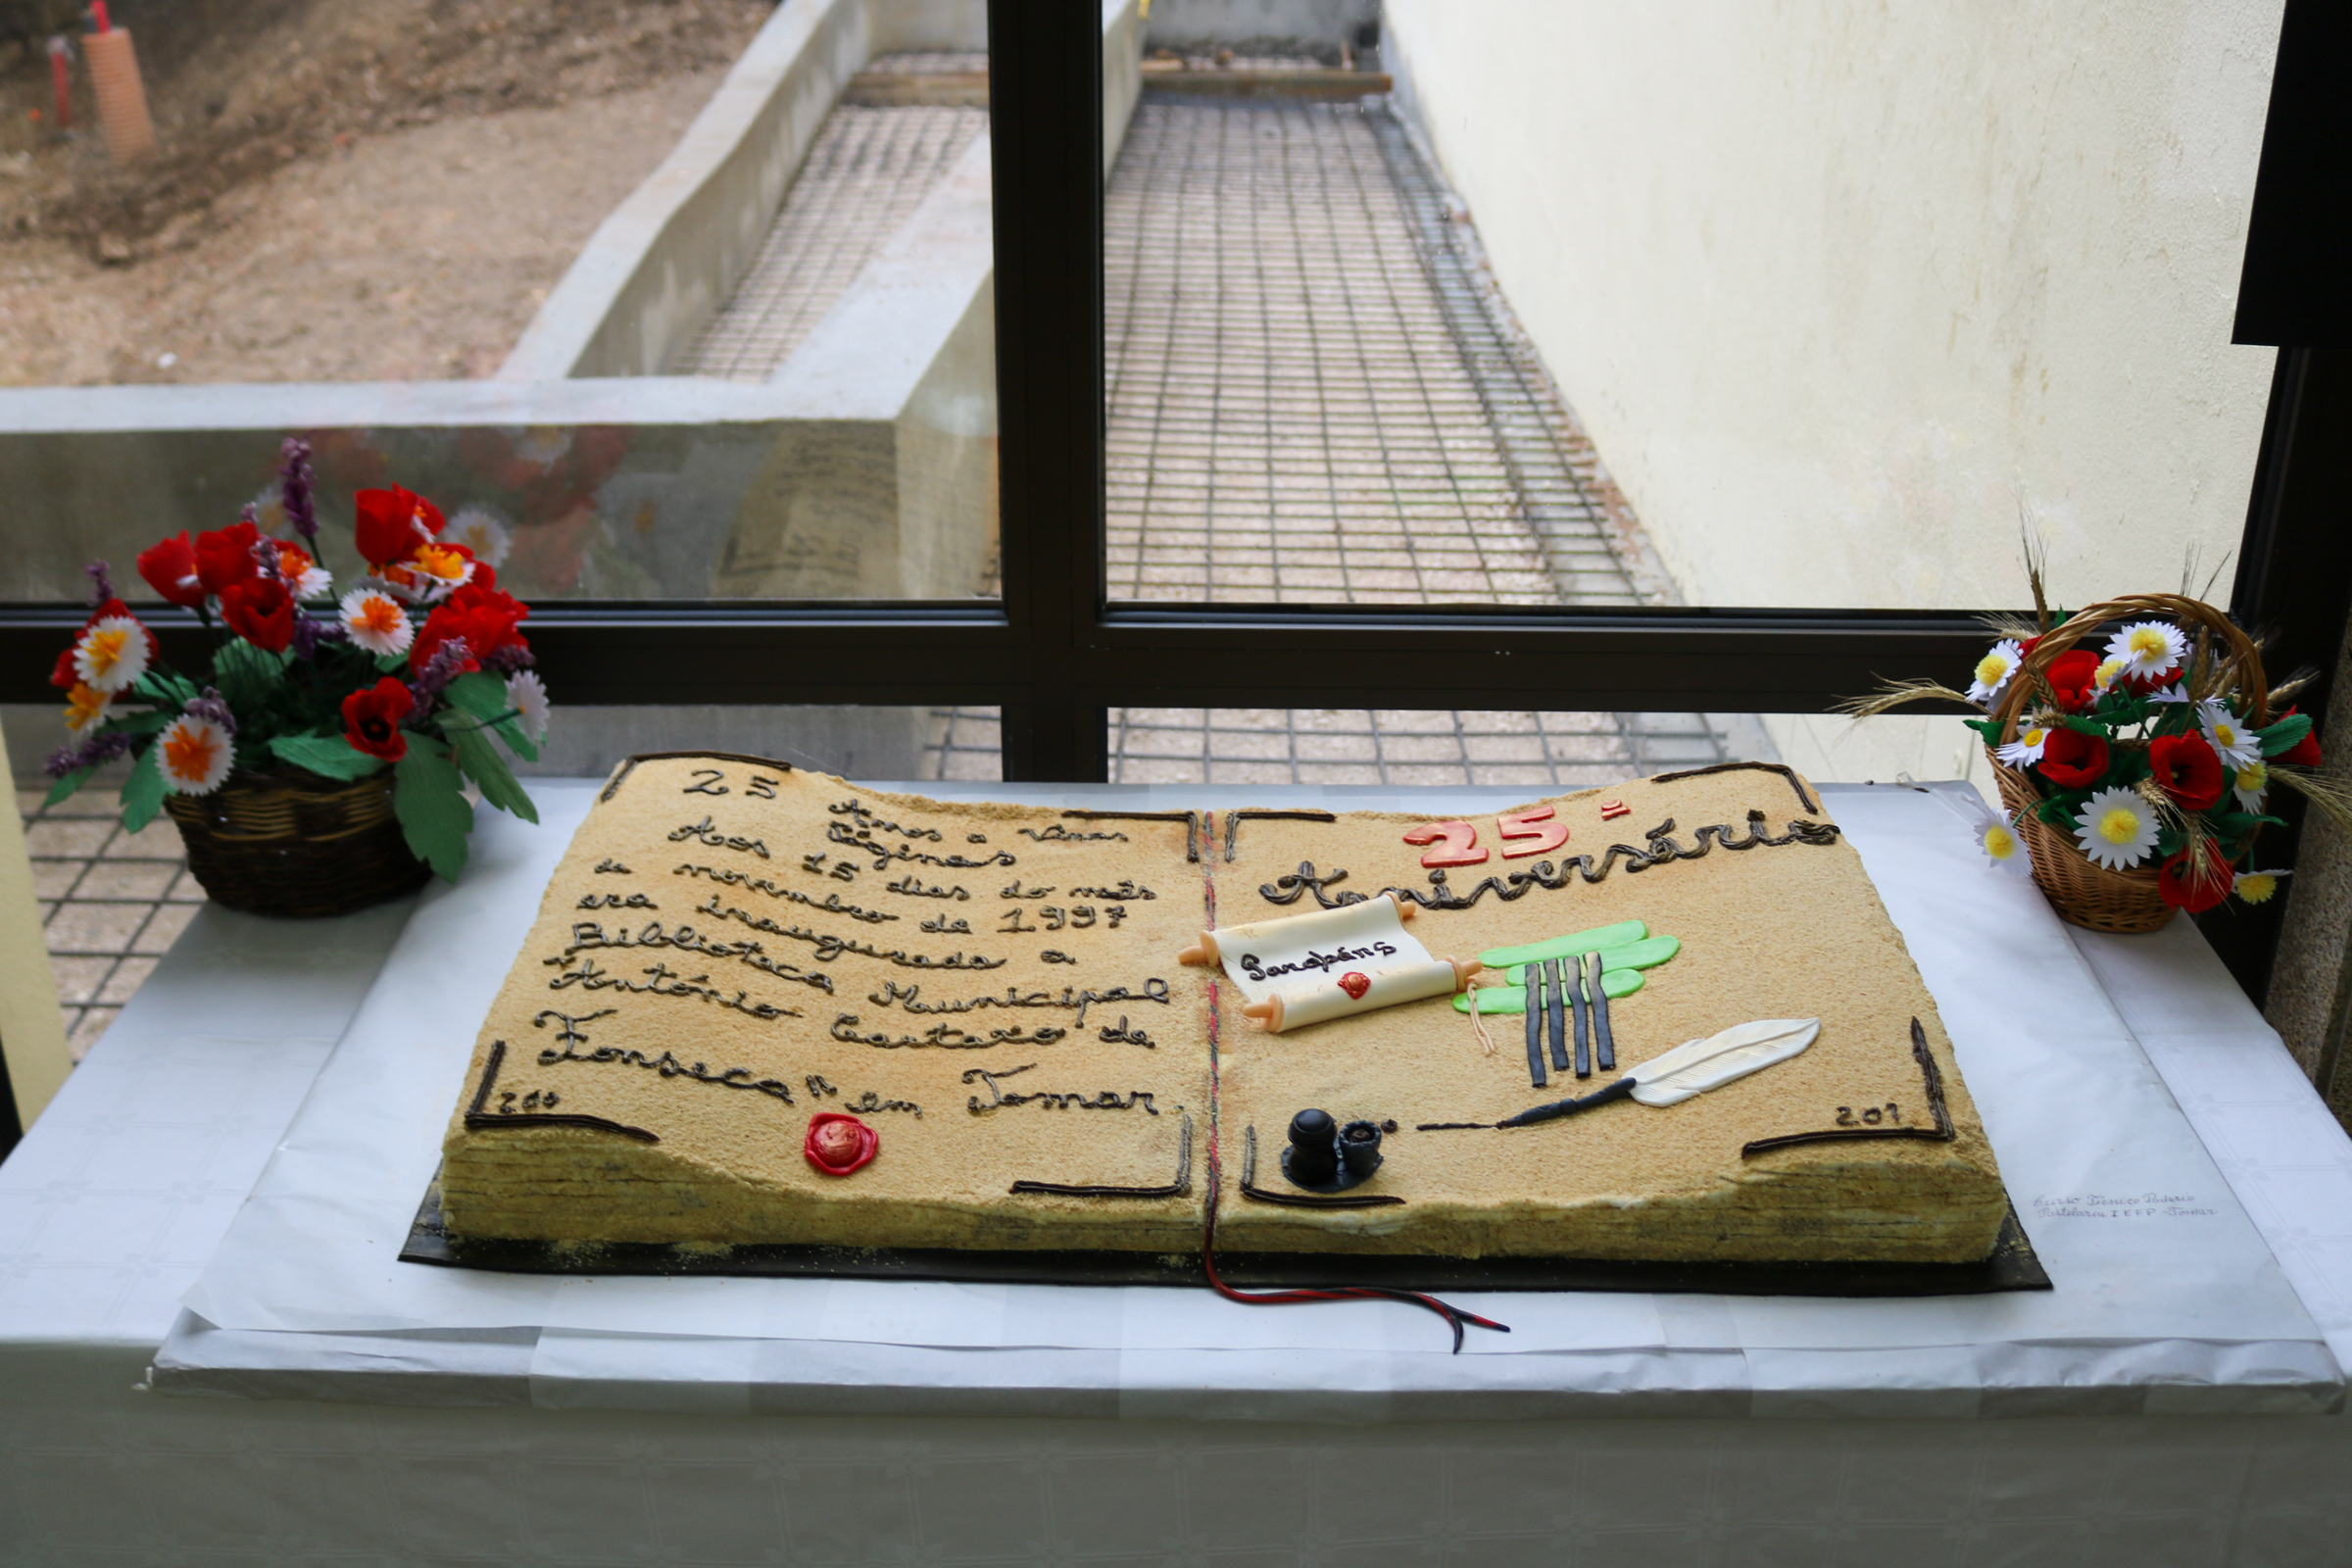 25 Anos a Virar
Páginas
Aos 15 dias do mês
de novembro de 1997
era inaugurada a
Biblioteca Municipal
"António Cartaxo da
Fonseca" em Tomar.
200
25º
Aniversário
Parabéns
201
Curso Técnico Padaria
Pastelaria IEFP - Tomar